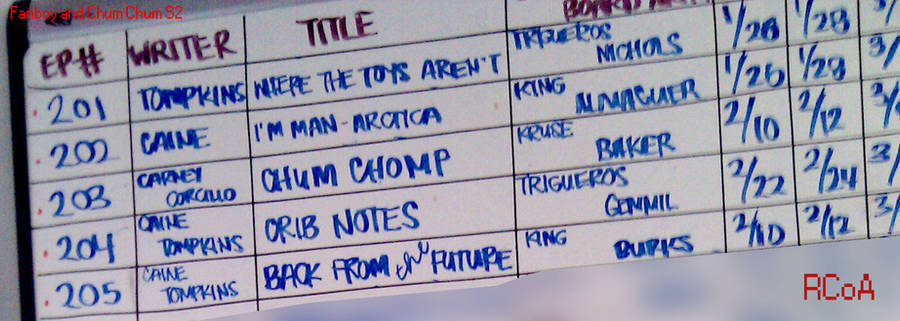 Fanboy and Chum Chum S2
EP# WRITER TITLE
201 TOMPKINS WHERE THE TOYS AREN'T TRIGUEROS NICHOLS 1/28 1/28 3/
202 CAINE I'M MAN-ARCTICA KING ALMAGUER 1/26 1/28
203 CARNEY CORCILLO CHUM CHOMP KRUSE BAKER 2/10 2/12
204 CAINE TOMPKINS CRIB NOTES TRIGUEROS GEMMIL 2/22 2/24 3/
205 CAINE TOMPKINS BACK FROM FUTURE KING BURKS 2/10 2/12 3/
RCoA